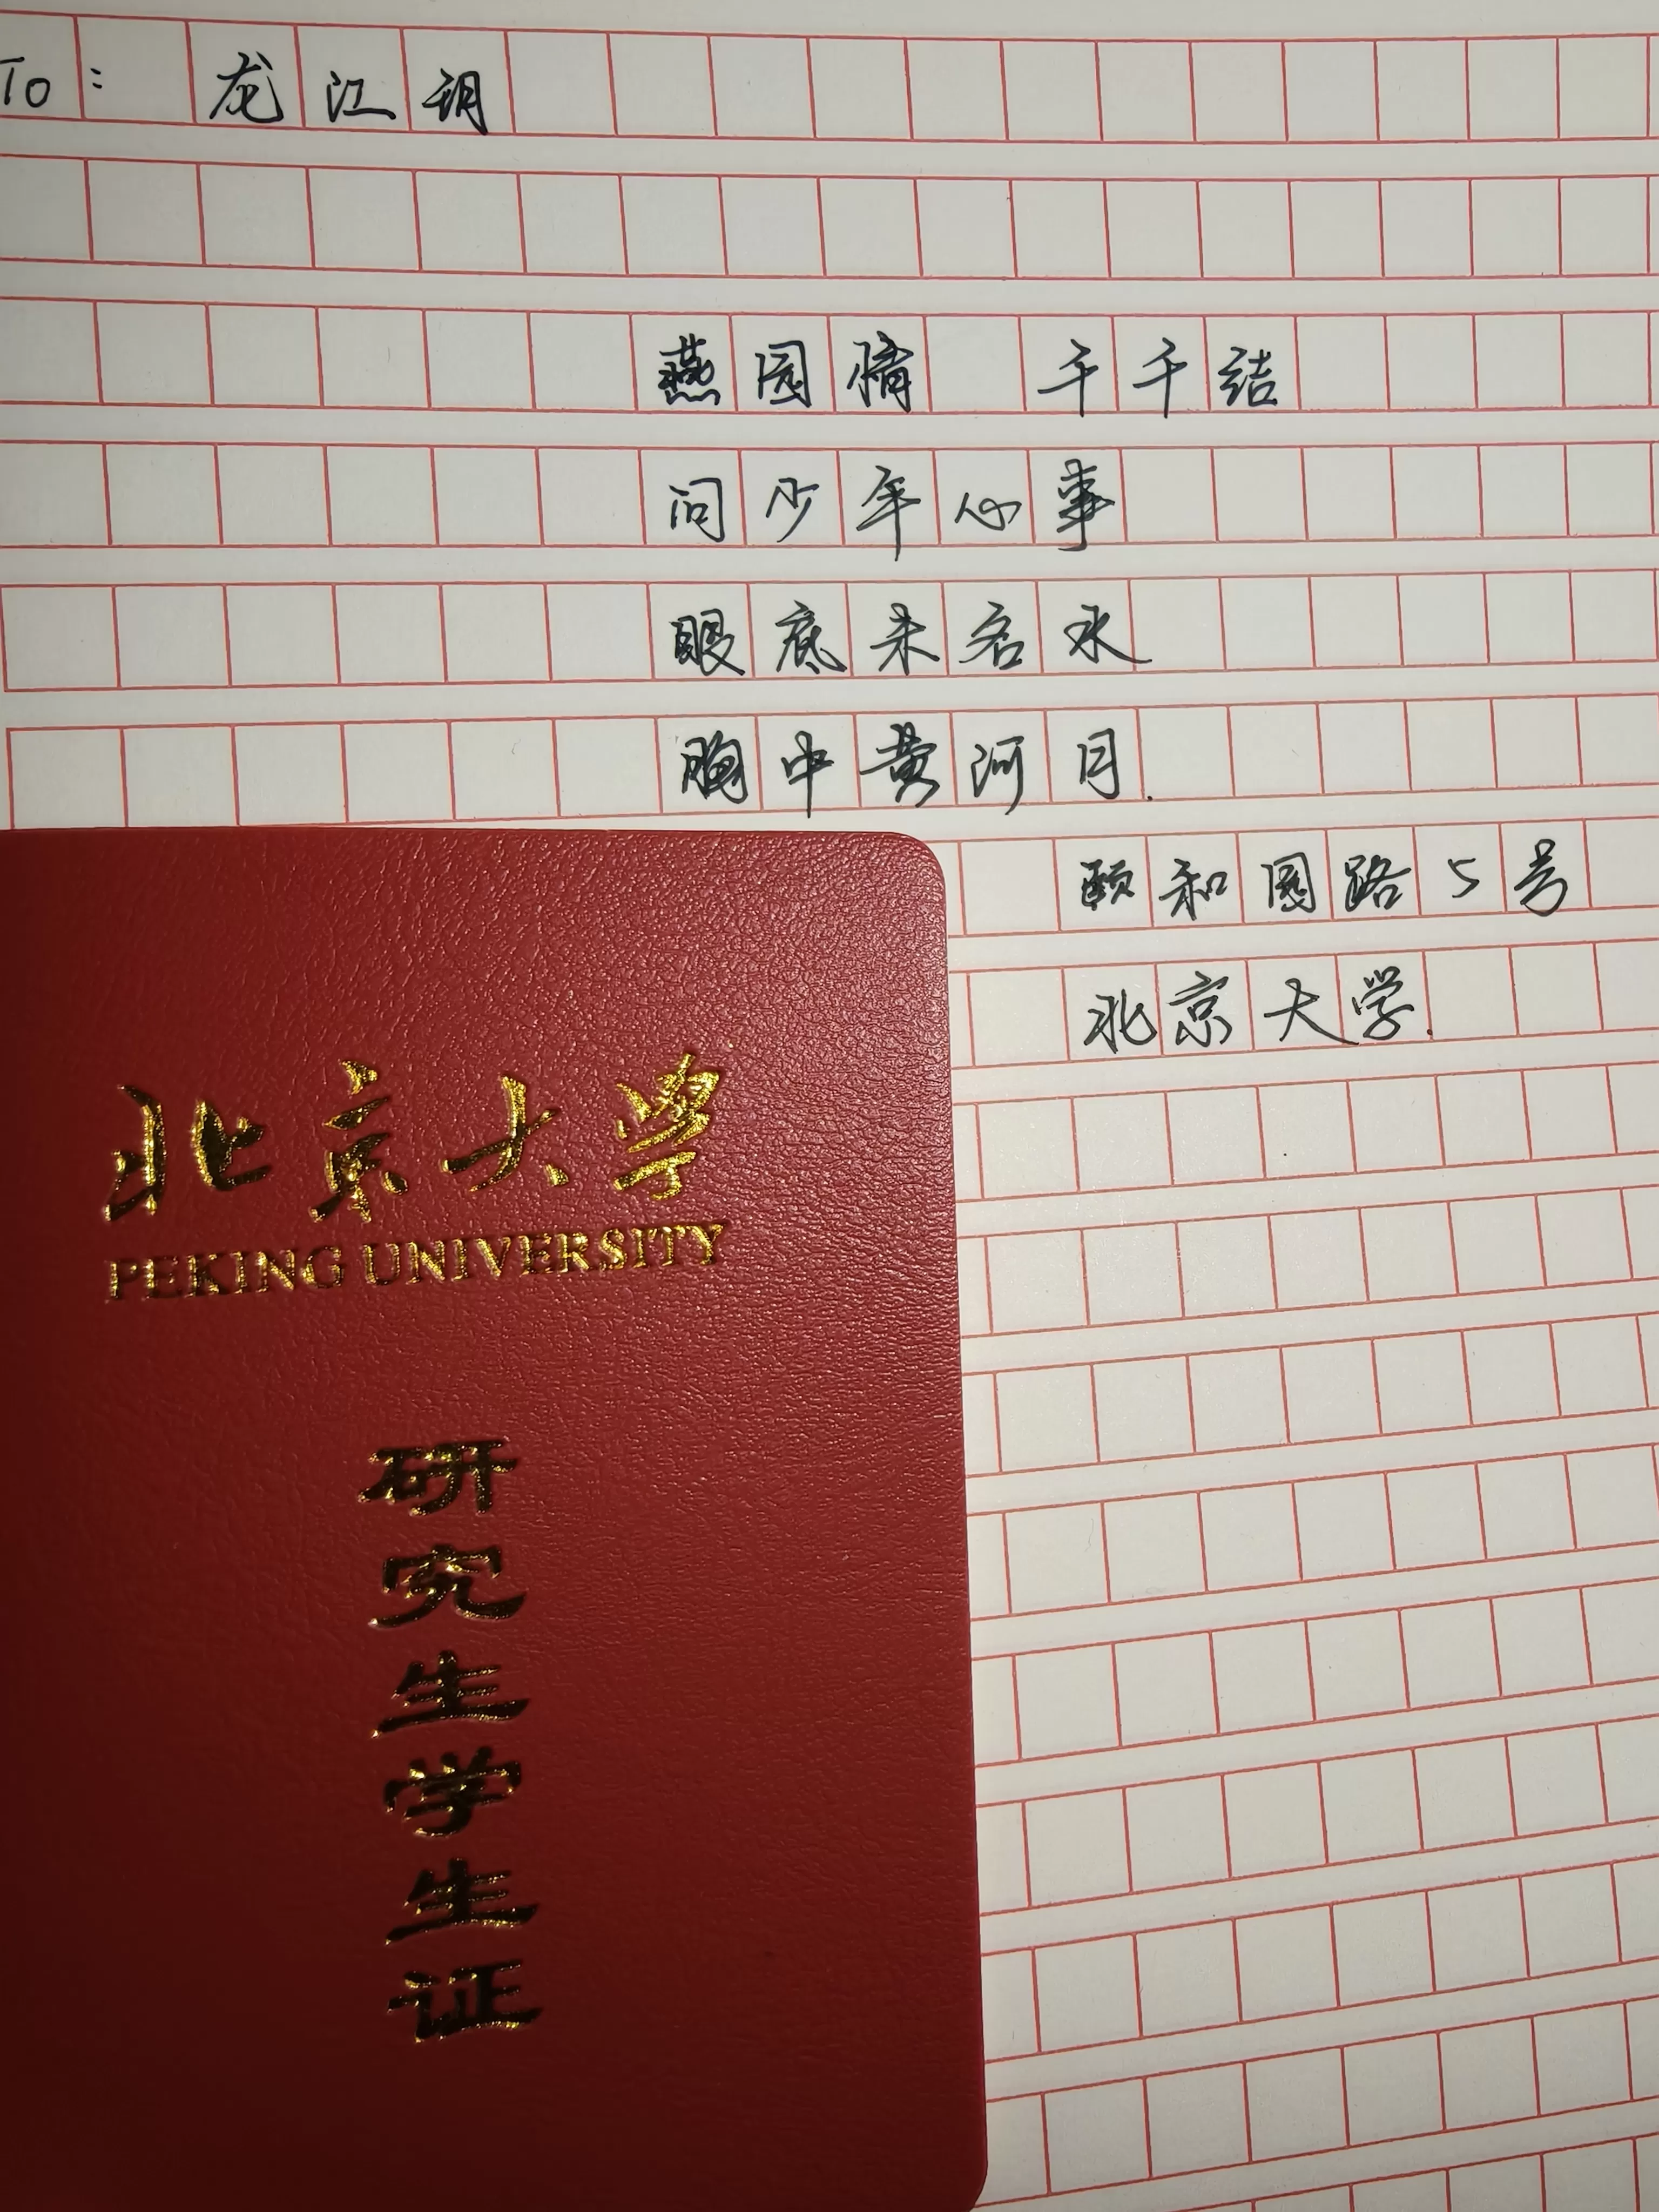 To: 龙江玥
燕园情 千千结
问少年心事
眼底未名水
胸中黄河月.
颐和园路5号
北京大学.
北京大学
PEKING UNIVERSITY
研究生学生证